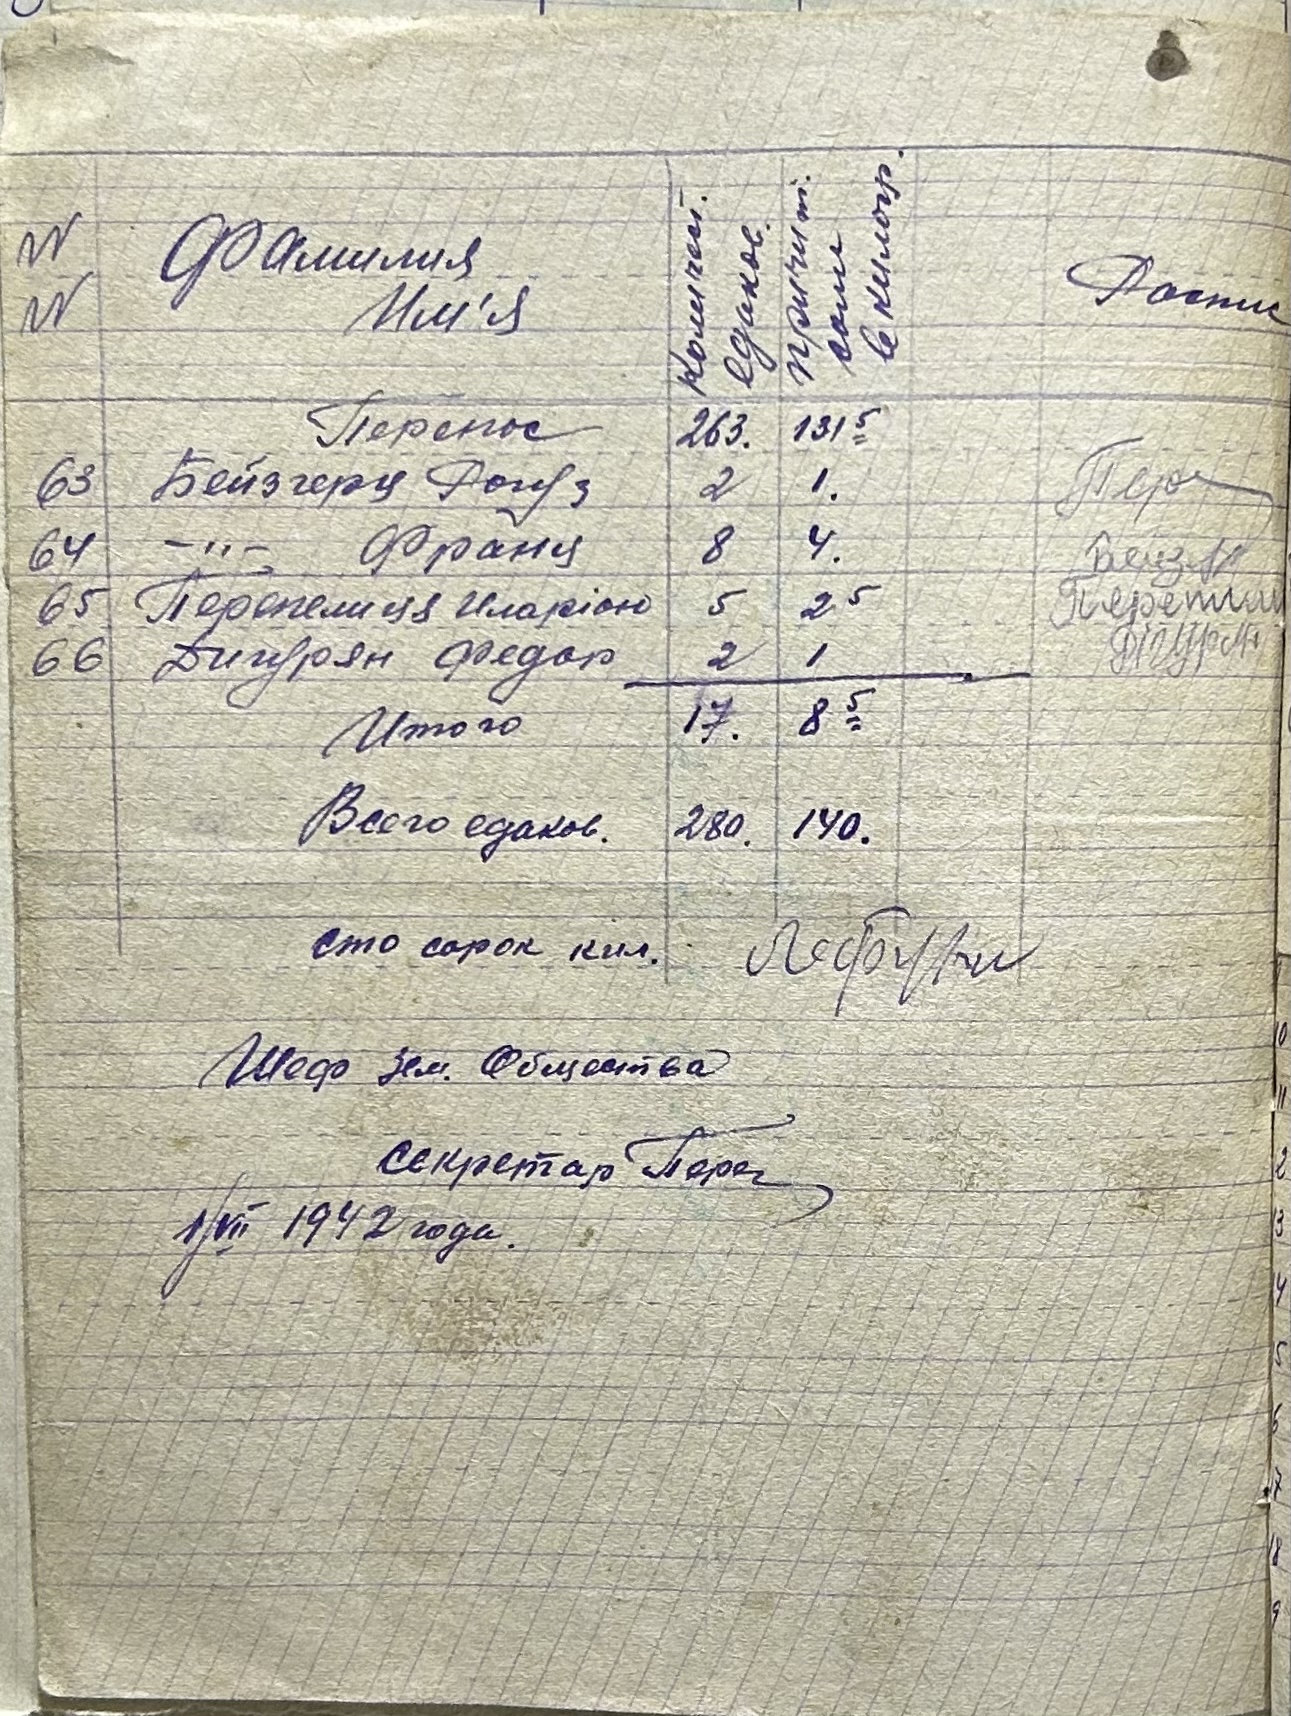 N N
Фамилия Им'я
Количест. едаков.
причит. соли в килогр.
Роспис
Перенос 263. 131 5
63 Бейзгерц 2 1. Пер
64 -"- Франц 8 4.
65 Перепелиця Иларіон 5 2 5 Перепели
66 Дигурян Федор 2 1 Дігурян
Итого 17. 8 5
Всего едаков. 280. 140.
сто сорок кил.
Шеф Зем. Общества
Секретар Пере
1/VII 1942 года.
10
11
2
3
4
5
6
7
18
9